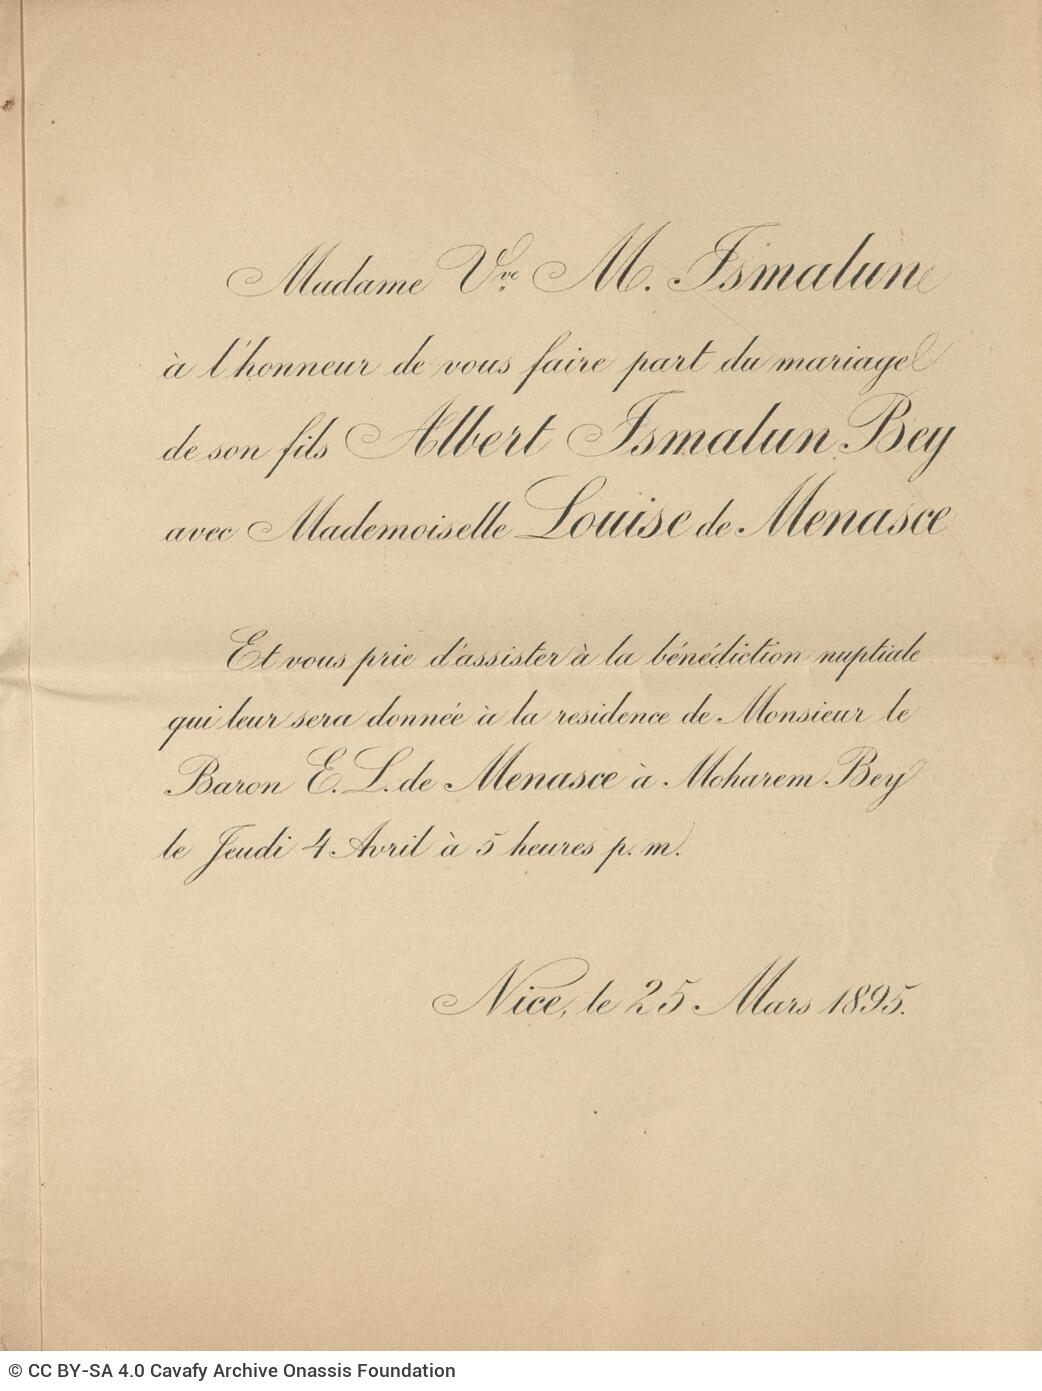 Madame Vve M. Ismalun
à l'honneur de vous faire part du mariage
de son fils Albert Ismalun Bey
avec Mademoiselle Louise de Menasce
Et vous prie d'assister à la bénédiction nuptiale
qui leur sera donnée à la residence de Monsieur le
Baron E. L. de Menasce à Moharem Bey
le Jeudi 4 Avril à 5 heures p. m.
Nice, le 25 Mars 1895.
© CC BY-SA 4.0 Cavafy Archive Onassis Foundation